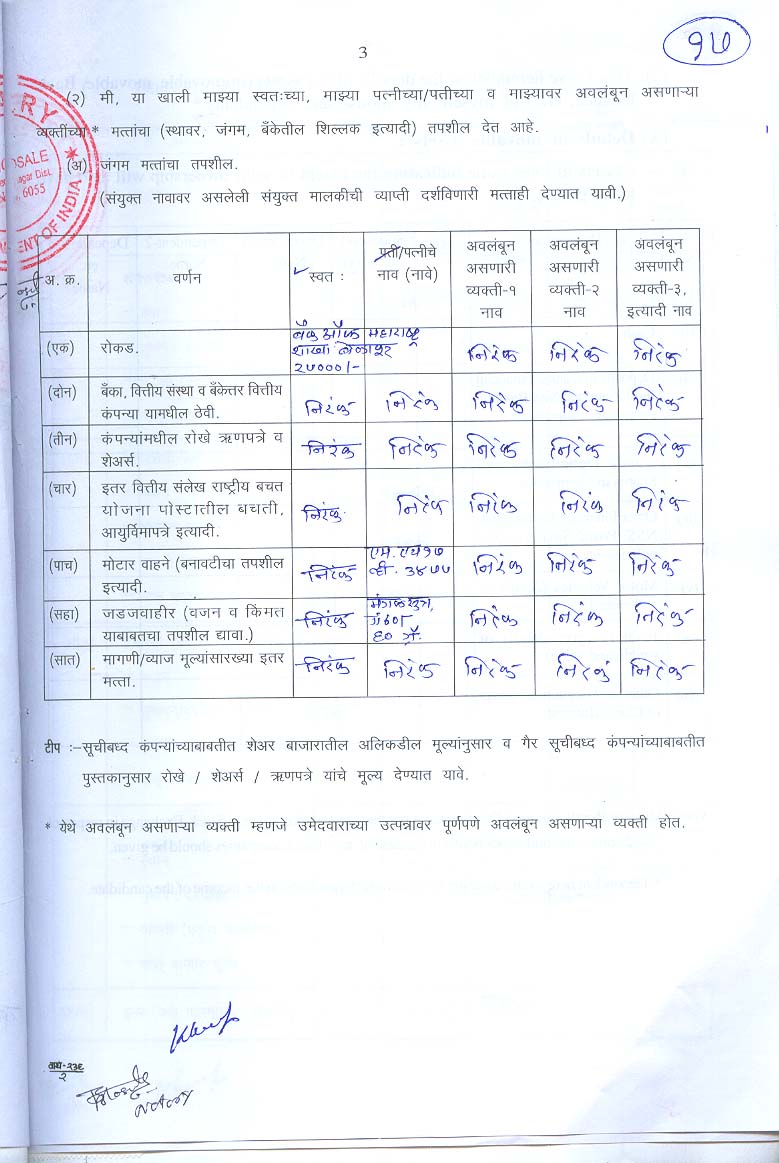 १७
3
(२) मी, या खाली माझ्या स्वतःच्या, माझ्या पत्नीच्या/पतीच्या व माझ्यावर अवलंबून असणाऱ्या
व्यक्तींच्या* मत्तांचा (स्थावर, जंगम, बँकेतील शिल्लक इत्यादी) तपशील देत आहे.
(अ) जंगम मत्तांचा तपशील.
(संयुक्त नावावर असलेली संयुक्त मालकीची व्याप्ती दर्शविणारी मत्ताही देण्यात यावी.)
RY
OSALE
agar Dist.
6055
ENT OF INDIA
अ. क्र.
वर्णन
स्वत :
पती/पत्नीचे
नाव (नावे)
अवलंबून
असणारी
व्यक्ती-१
नाव
अवलंबून
असणारी
व्यक्ती-२
नाव
अवलंबून
असणारी
व्यक्ती-३,
इत्यादी नाव
(एक) रोकड.
बँक ऑफ महाराष्ट्र
शाखा
२५०००/-
निरंक निरंक निरंक
(दोन) बँका, वित्तीय संस्था व बँकेत्तर वित्तीय
कंपन्या यामधील ठेवी.
निरंक निरंक निरंक निरंक निरंक
(तीन) कंपन्यांमधील रोखे ऋणपत्रे व
शेअर्स.
निरंक निरंक निरंक निरंक निरंक
(चार) इतर वित्तीय संलेख राष्ट्रीय बचत
योजना पोस्टातील बचती,
आयुर्विमापत्रे इत्यादी.
निरंक निरंक निरंक निरंक निरंक
(पाच) मोटार वाहने (बनावटीचा तपशील
इत्यादी.
निरंक
एम. एच १७
व्ही. ३४७५
निरंक निरंक निरंक
(सहा) जडजवाहीर (वजन व किंमत
याबाबतचा तपशील द्यावा.)
निरंक
मंगळसुत्र,
६० ग्रॅ.
निरंक निरंक निरंक
(सात) मागणी/व्याज मूल्यांसारख्या इतर
मत्ता.
निरंक निरंक निरंक निरंक निरंक
टीप :–सूचीबध्द कंपन्यांच्याबाबतीत शेअर बाजारातील अलिकडील मूल्यांनुसार व गैर सूचीबध्द कंपन्यांच्याबाबतीत
पुस्तकानुसार रोखे / शेअर्स / ऋणपत्रे यांचे मूल्य देण्यात यावे.
* येथे अवलंबून असणाऱ्या व्यक्ती म्हणजे उमेदवाराच्या उत्पन्नावर पूर्णपणे अवलंबून असणाऱ्या व्यक्ती होत.
२
NOTARY